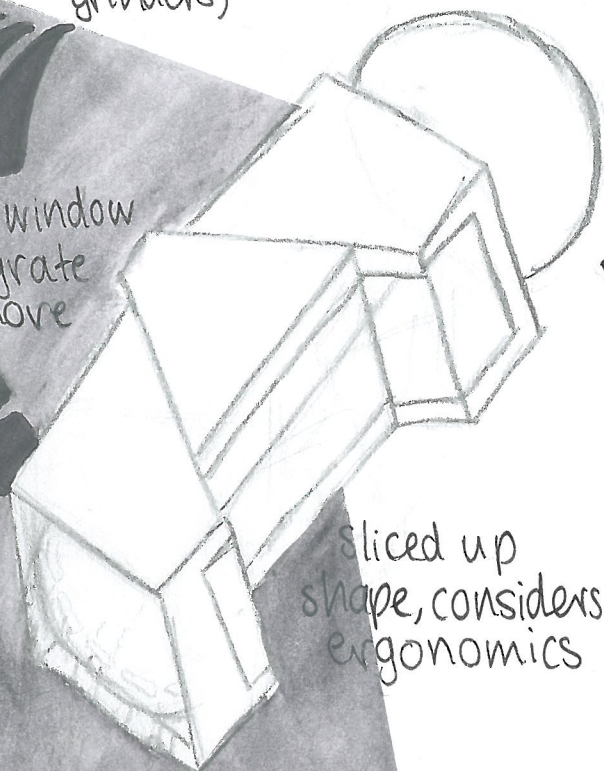 grinders,
window
grate
sliced up
shape, considers
ergonomics